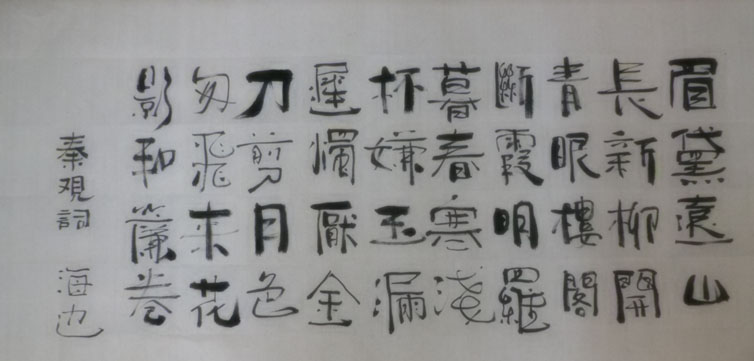 眉黛遠山
長新柳開
青眼樓閣
斷霞明羅
暮春寒淺
杯嫌玉漏
遲燭厭金
刀剪月色
忽飛来花
影和簾卷
秦观詞 海边